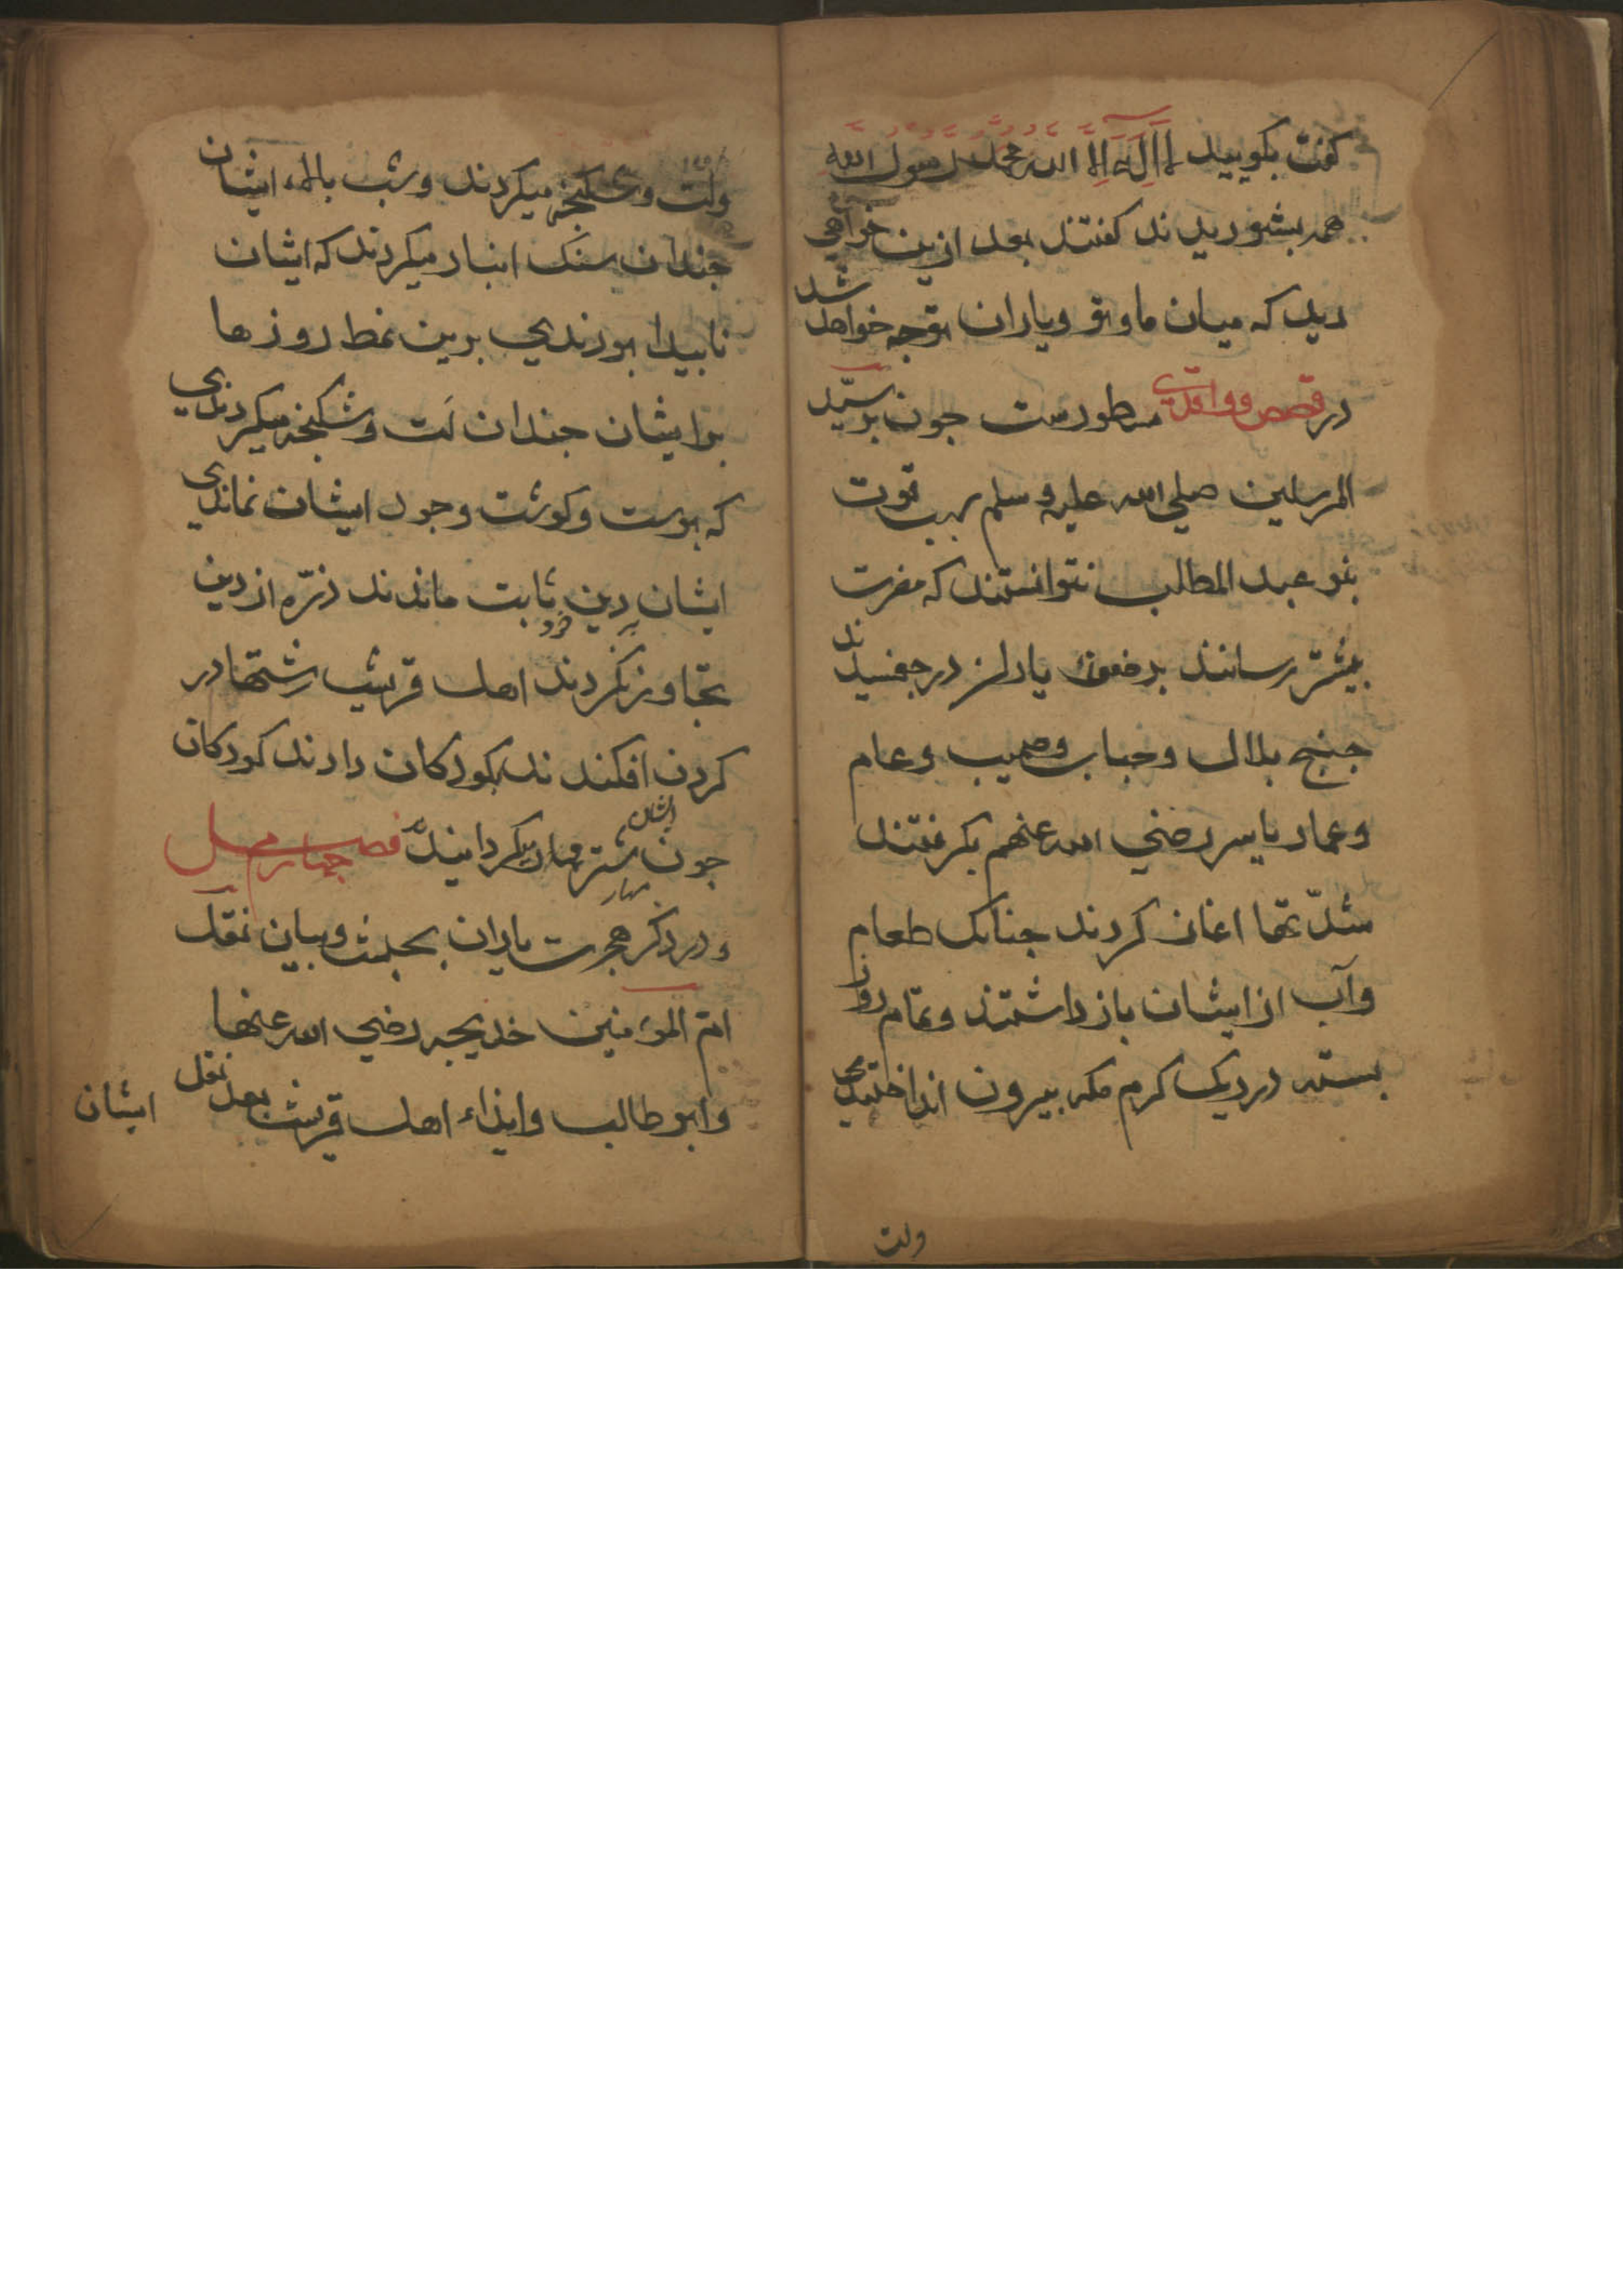 کفت بکویید لا اله الا الله محمد رسول الله
همه بشوریدند کفتند بعد ازین خواهی
دید که میان ما و تو و یاران تو چه خواهد شد
در قصص و واقدی مسطورست جون بر سیّد
المرسلین صلی الله علیه وسلم بسبب قوت
بنو عبد المطلب نتوانستند که مضرت
بیشتر رسانند بر ضعفه یاران در جفسیدند
جنج بلال و خباب و صهیب و عام
و عمار یاسر رضی الله عنهم بکرفتند
شدّتها اغاز کردند جنانک طعام
و آب از ایشان باز داشتند و تمام روز
بسته در ریک کرم مکه بیرون انداختندی
ولت
ولت و شکنجه میکردند و شب بالاء ایشان
جندان سنک انبار میکردند که ایشان
نابیدا بودندی برین نمط روزها
بر ایشان جندان لت و شکنجه میکردندی
که بوست و کوشت وجود ایشان نماندی
ایشان بر دین خود ثابت ماندند ذرّه از دین
تجاوز نکردند اهل قریش رشتها در
کردن افکندند بکودکان دادند کودکان
ایشان
جون شتر مهار میکردانیدند فصل چهارم
مهار
و در ذکر هجرت یاران بحبشه و بیان نقل
ام المؤمنین خدیجه رضی الله عنها
و ابو طالب و ایذاء اهل قریش بعد نقل ایشان